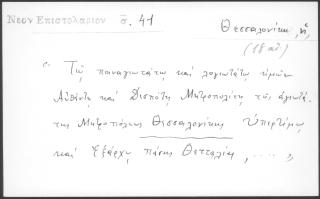 Νεον Επιστολαριον σ. 41
Θεσσαλονίκη,
(18 αἰ)
Τῷ παναγιωτάτῳ καὶ λογιωτάτῳ ἡμῶν
Αὐθέντῃ καὶ Δεσπότῃ Μητροπολίτῃ τῆς ἁγιωτά-
της Μητροπόλεως Θεσσαλονίκης Ὑπερτίμῳ
καὶ Ἐξάρχῳ πάσης Θετταλίας, .....»